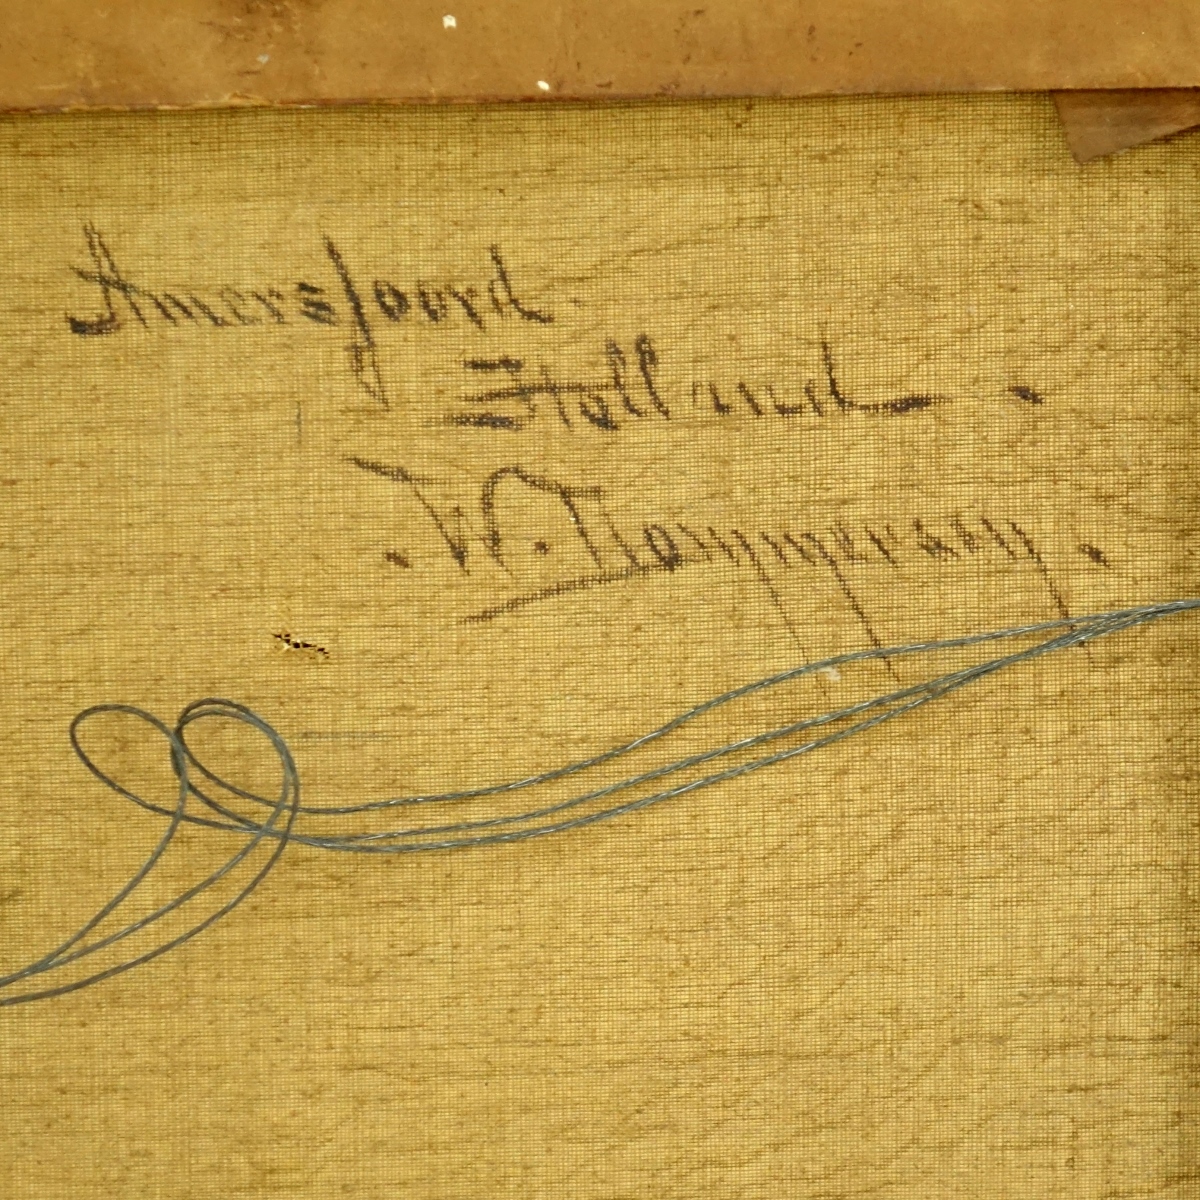 Amersfoord
Holland.
W.